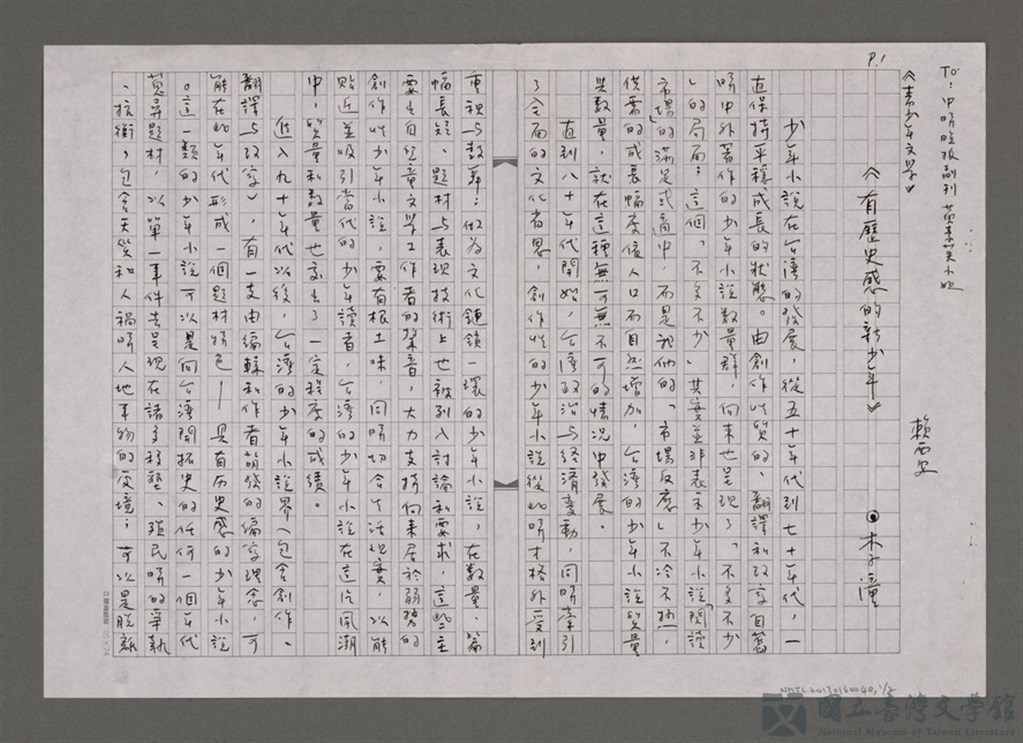 P.1
To：中時晚報副刊 黃 小姐
《青少年文學》
《有歷史感的新少年》
賴西安
◉李潼
少年小說在台灣的發展，從五十年代到七十年代，一
直保持平穩成長的狀態。由創作以質的、翻譯和改寫自舊
時中外著作的少年小說數量群，向來也呈現了「不多不少
」的局面；這個「不多不少」其實並非表示少年小說「閱讀
市場」的滿足或適中，而是說他的「市場反應」不冷不熱，
供需的成長幅度僅人口而自然增加，台灣的少年小說質量
與數量，就在這種無可無不可的情況中發展。
直到八十年代開始，台灣政治與經濟變動，同時牽引
了全面的文化省思，創作性的少年小說從此時才格外受到
重視與鼓舞；做為文化鏈鎖一環的少年小說，在數量、篇
幅長短、題材與表現技術上也被列入討論和要求，這些主
要出自兒童文學工作者的聲音，大力支持向來居於弱勢的
創作性少年小說，要有根土味，同時切合生活現實，以能
貼近並吸引當代的少年讀者，台灣的少年小說在這片風潮
中，質量和數量也交出了一定程度的成績。
進入九十年代以後，台灣的少年小說界（包含創作、
翻譯與改寫），有一支由編輯和作者萌發的編寫理念，可
能在此年代形成一個題材特色──具有历史感的少年小說
。這一類的少年小說可以是向台灣開拓史的任何一個年代
覓尋題材，以單一事件去呈現在諸多移墾、殖民時的爭執
、抗衡，包含天災和人禍時人地事物的变境；可以是脱離
NMTL20130160040,1/2
國立臺灣文學館
National Museum of Taiwan Literature